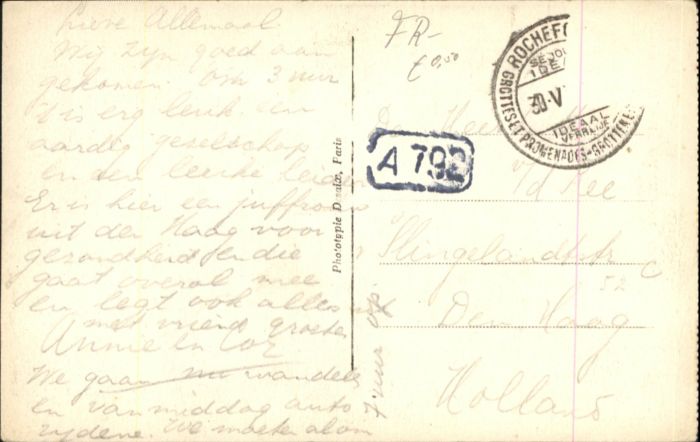 Lieve Allemaal
Wij zijn goed aan
gekomen om 3 uur
't is erg leuk een
aardig geselschap
en een leuke leider
Er is hier een juffrouw
uit den Haag voor
gezondheid en die
gaat overal mee
en legt ook alles uit
met vriend groeten
Annie en Cor.
We gaan nu wandelen
en van middag auto
rijdene. We moeten alom
7 uur op
Phototypie Desaix, Paris
FR-
€ 0,50
A 792
ROCHEFO
SEJOU
IDEA
30 V
IDEAAL
VERBLIJF
GROTTES ET PROMENADES-GROTTEN E
Den Heer
v/d Kee
Slingelandtstr
52 C
Den Haag
Holland